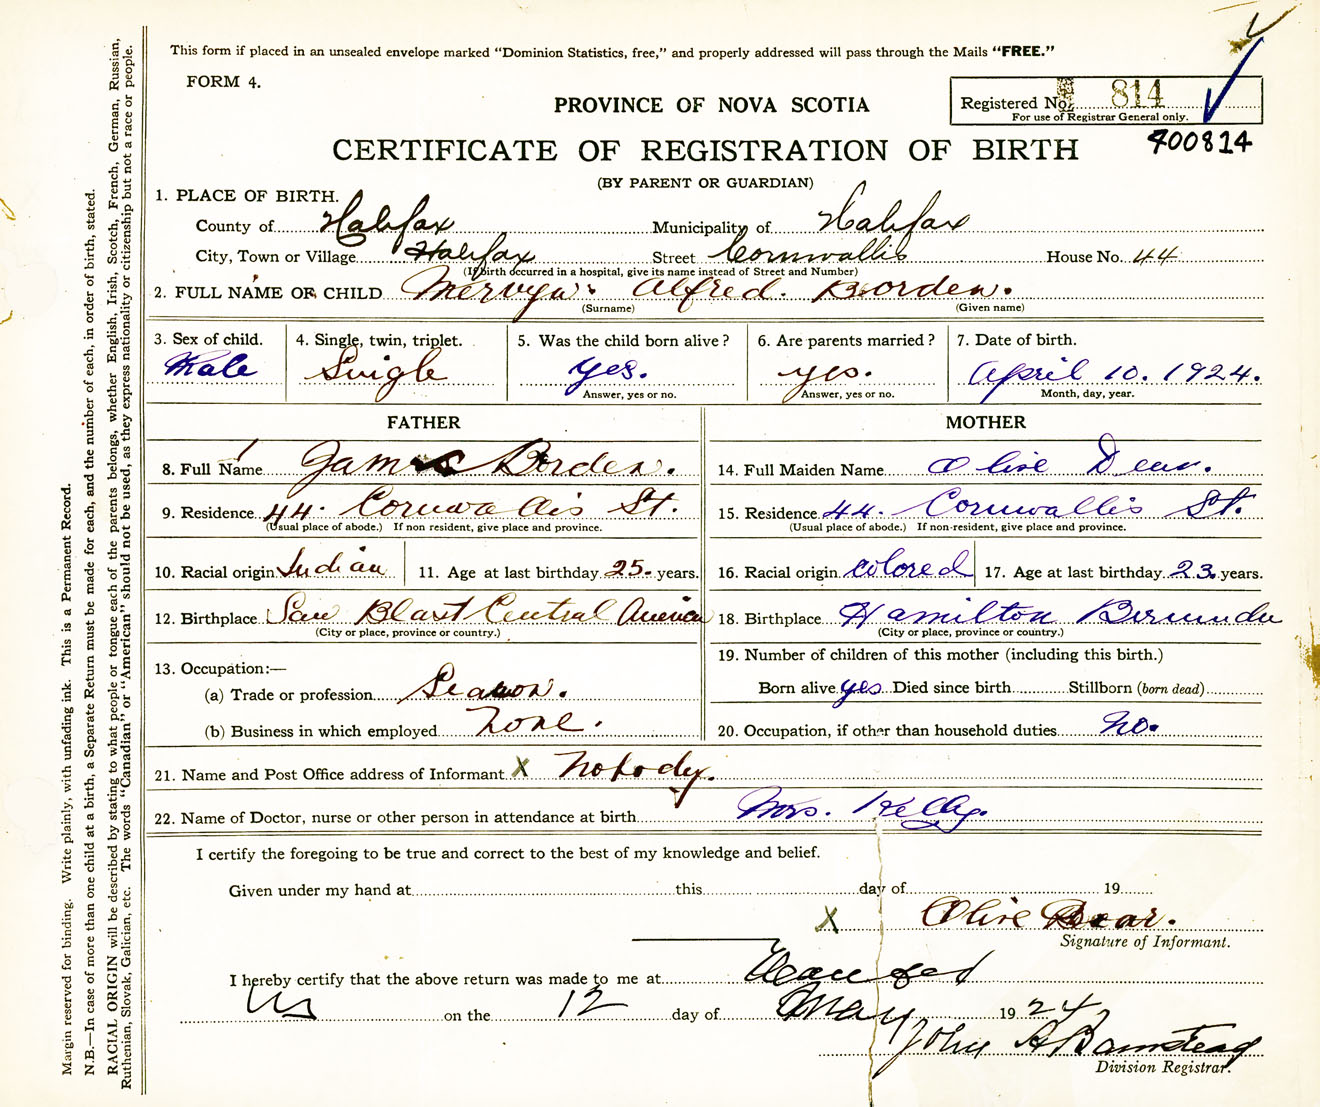 This form if placed in an unsealed envelope marked "Dominion Statistics, free," and properly addressed will pass through the Mails "FREE."
FORM 4.
PROVINCE OF NOVA SCOTIA
Registered No. 814
For use of Registrar General only.
400814
CERTIFICATE OF REGISTRATION OF BIRTH
(BY PARENT OR GUARDIAN)
1. PLACE OF BIRTH.
County of Halifax Municipality of Halifax
City, Town or Village Halifax Street Cornwallis House No. 44
(If birth occurred in a hospital, give its name instead of Street and Number)
2. FULL NAME OF CHILD Mervyn Alfred. Borden.
(Surname) (Given name)
3. Sex of child. 4. Single, twin, triplet. 5. Was the child born alive? 6. Are parents married? 7. Date of birth.
Male Single Yes. yes. April 10. 1924.
Answer, yes or no. Answer, yes or no. Month, day, year.
FATHER MOTHER
8. Full Name James Borden. 14. Full Maiden Name Olive Dear.
9. Residence 44. Cornwallis St. 15. Residence 44. Cornwallis St.
(Usual place of abode.) If non resident, give place and province. (Usual place of abode.) If non-resident, give place and province.
10. Racial origin Indian 11. Age at last birthday 25. years. 16. Racial origin colored 17. Age at last birthday 23. years.
12. Birthplace San Blast Central America 18. Birthplace Hamilton Bermuda
(City or place, province or country.) (City or place, province or country.)
19. Number of children of this mother (including this birth.)
13. Occupation:—
(a) Trade or profession Seamon. Born alive yes Died since birth Stillborn (born dead)
(b) Business in which employed None. 20. Occupation, if other than household duties No.
21. Name and Post Office address of Informant X Nobody.
22. Name of Doctor, nurse or other person in attendance at birth Mrs. Kelly.
I certify the foregoing to be true and correct to the best of my knowledge and belief.
Given under my hand at this day of 19
X Olive
Signature of Informant.
I hereby certify that the above return was made to me at
NS on the 12 day of May 1924
John A Barnstead
Division Registrar.
Margin reserved for binding. Write plainly, with unfading ink. This is a Permanent Record.
N.B.—In case of more than one child at a birth, a Separate Return must be made for each, and the number of each, in order of birth, stated.
RACIAL ORIGIN will be described by stating to what people or tongue each of the parents belongs, whether English, Irish, Scotch, French, German, Russian,
Ruthenian, Slovak, Galician, etc. The words "Canadian" or "American" should not be used, as they express nationality or citizenship but not a race or people.